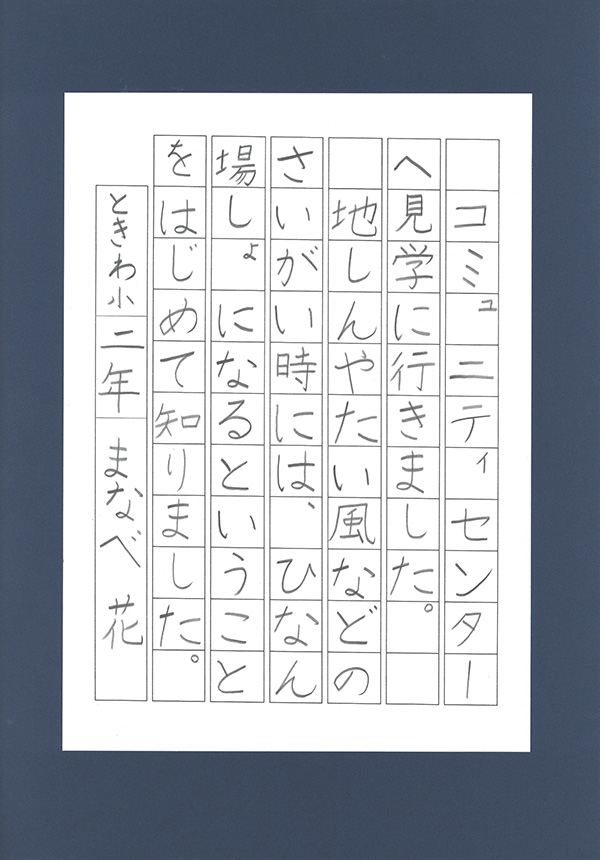 コミュニティセンター
へ見学に行きました。
　地しんやたい風などの
さいがい時には、ひなん
場しょになるということ
をはじめて知りました。
ときわ小 二年 まなべ 花